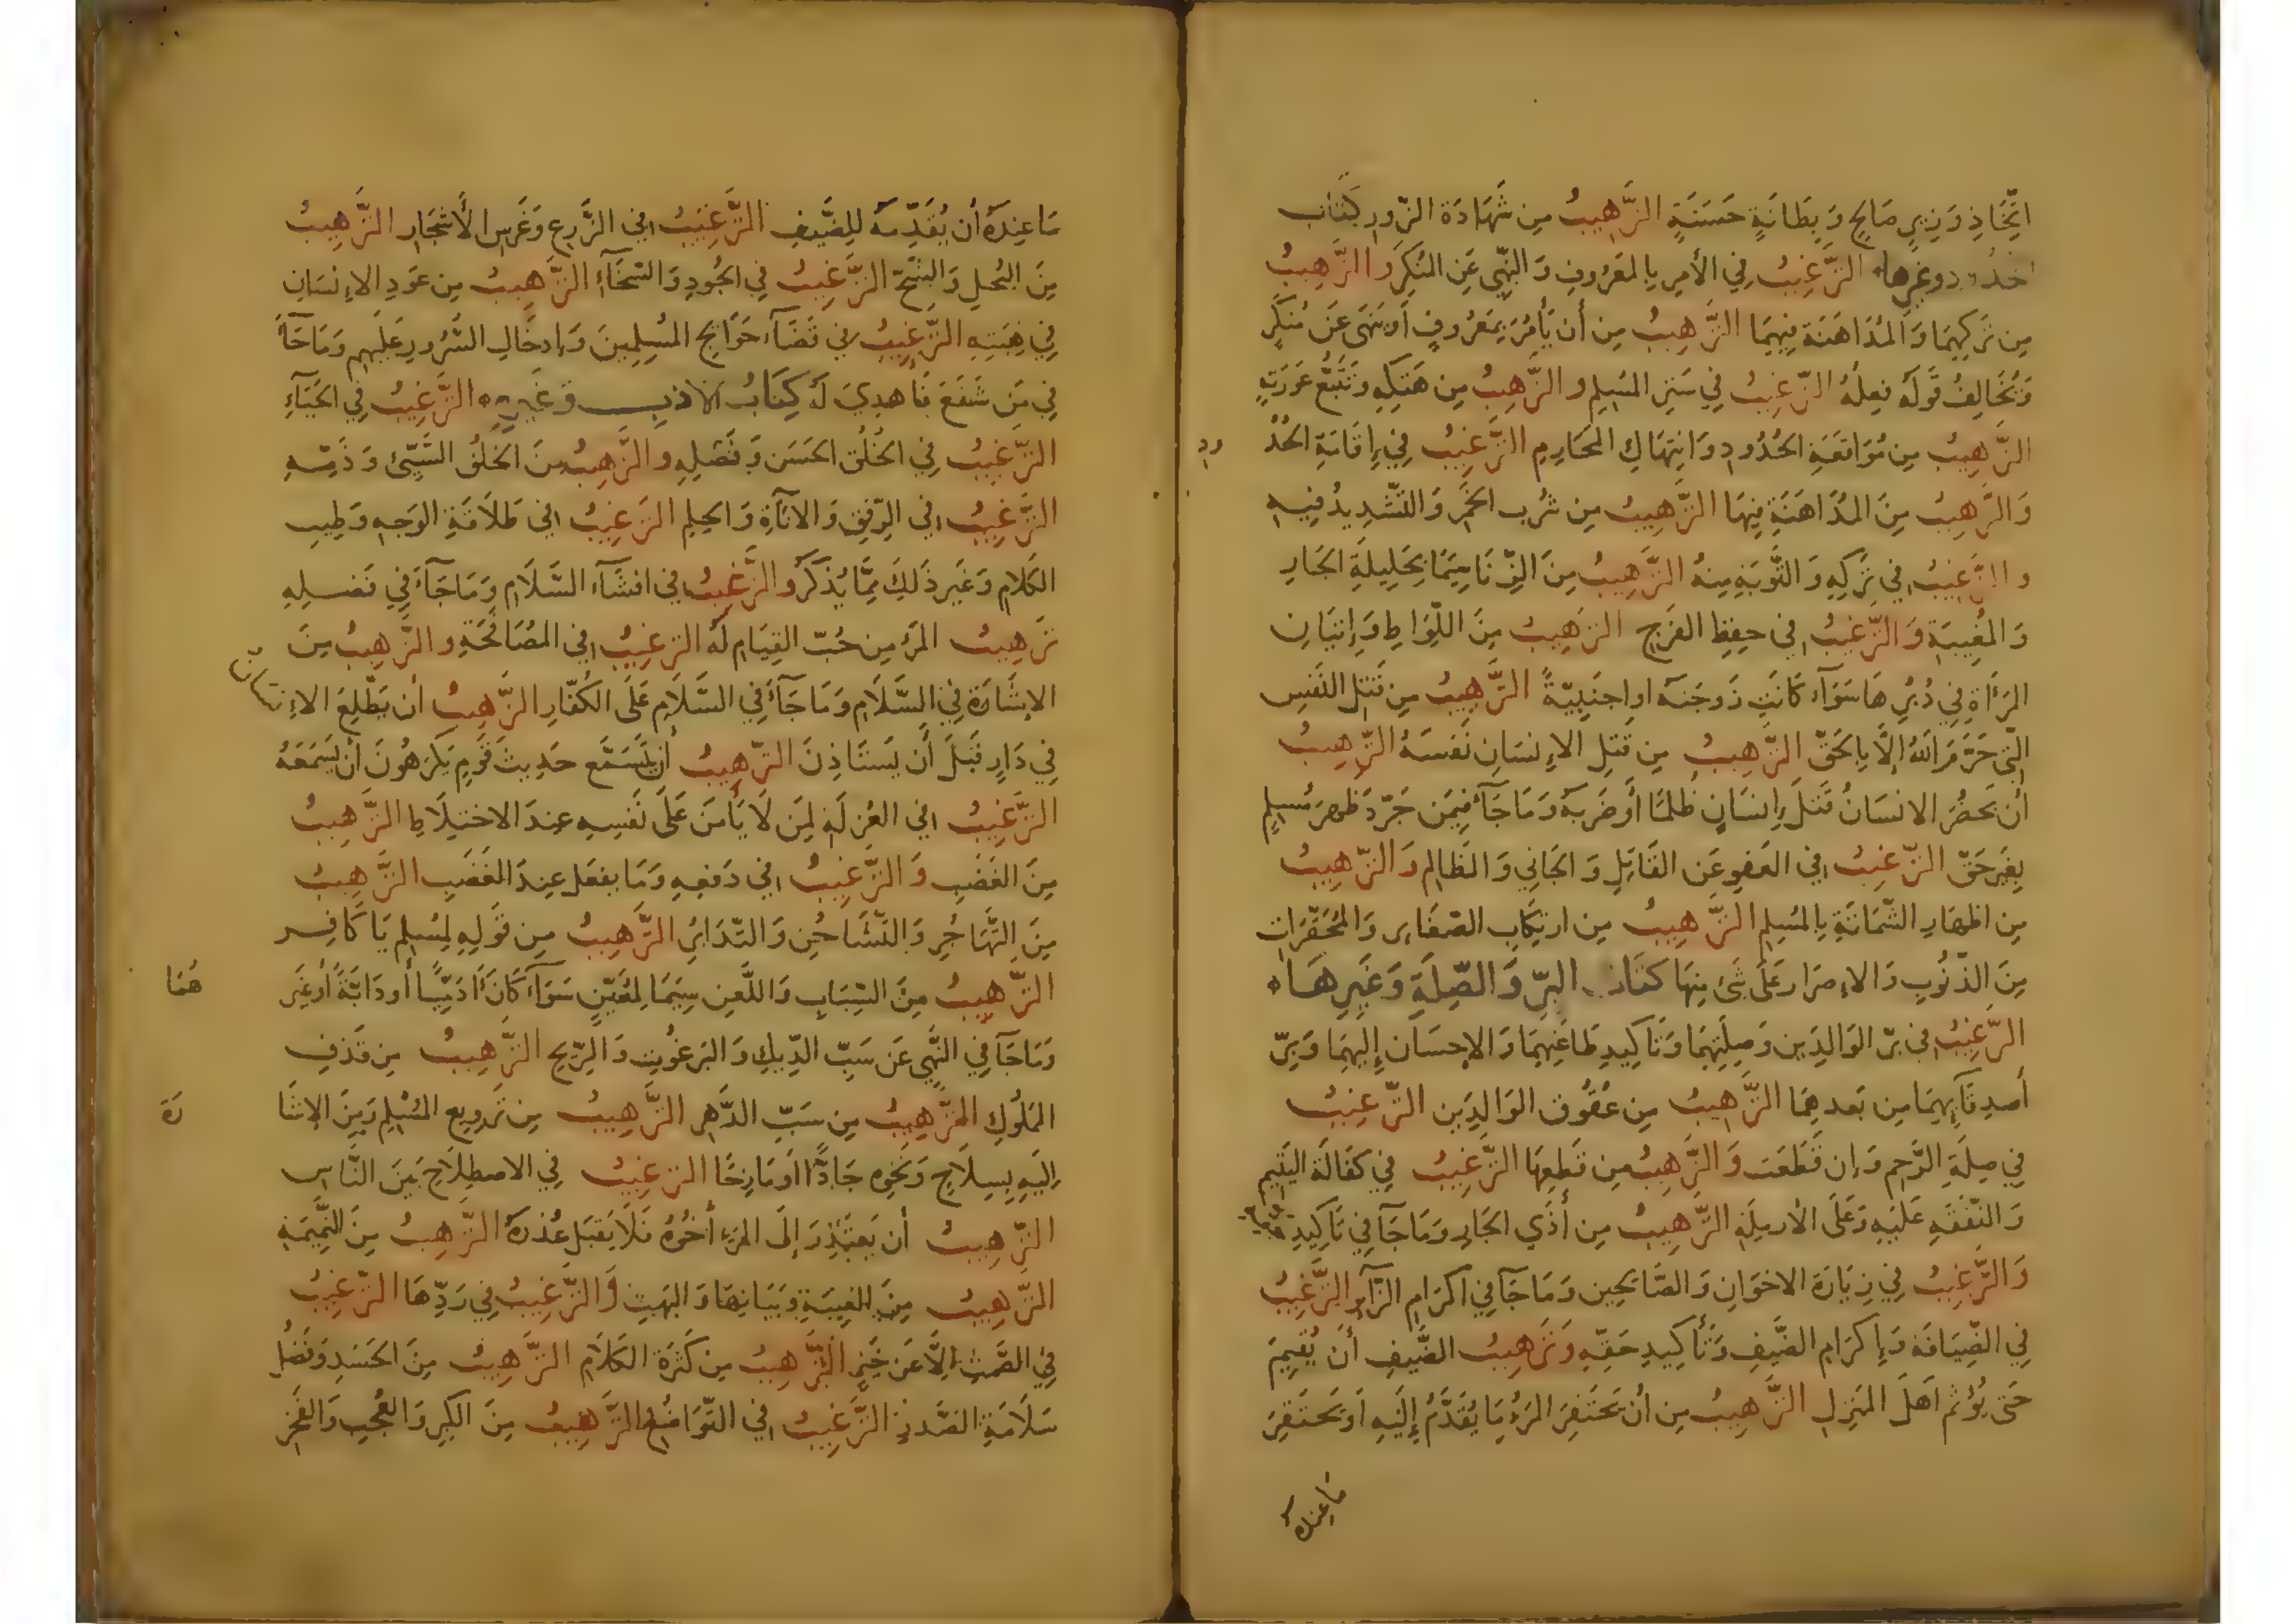 اتِّخَاذِ وَزِيرٍ صَالِحٍ وَبِطَانَةٍ حَسَنَةٍ التَّرْهِيبُ مِن شَهَادَة الزّورِ كتَاب
الحُدُود وغَيرِها التَّرْغِيبُ فِي الأمرِ بالمَعرُوفِ وَالنَّهْيِ عَنِ المُنكَر وَالتَّرْهِيبُ
مِن تَركِهِمَا وَالمُدَاهَنَةِ فِيهِمَا التَّرْهِيبُ مِن أن يَأمُرَ بِمَعرُوفٍ أو يَنهَى عَن مُنكَرٍ
وَيُخَالِفُ قَولَهُ فِعلَهُ التَّرغِيبُ فِي سَترِ المُسلِم والتَّرهِيبُ مِن هَتكِهِ وَتَتَبُّع عَورَتِهِ
التَّرهِيبُ مِن مُوَاقعَةِ الحُدُودِ وَانتِهَاكِ المَحَارِمِ التَّرغِيبُ فِي إِقَامَةِ الحُدُ ودِ
وَالتَّرهِيبُ مِنَ المُدَاهَنَةِ فِيهَا التَّرهِيبُ مِن شُرب الخَمرِ وَالتَّشدِيدُ فِيهِ
والتَّرغِيبُ في تَركِهِ وَالتَّوبَةِ مِنهُ التَّرهِيبُ مِنَ الزِّنَا سِيَّمَا بِحَلِيلَةِ الجَارِ
وَالمُغِيبَةِ وَالتَّرغِيبُ في حِفظِ الفَرجِ التَّرهِيبُ مِنَ اللِّوَاطِ وَإِتيَانِ
المَرأَةِ فِي دُبُرِهَا سَوَاء كَانَت زَوجَتَه او اجنَبِيَّةً التَّرهِيبُ مِن قَتلِ النَّفسِ
الَّتِي حَرَّمَ اللهُ إلَّا بِالحَقّ التَّرهِيبُ مِن قَتلِ الإنسَانِ نَفسَهُ التَّرهِيبُ
أن يَحضُرَ الانسَانُ قَتلَ إنسَانٍ ظُلمًا أَو ضَربَهُ وَمَا جَاءَ فِيمَن جَرّدَ ظَهرَ مُسلِمٍ
بِغَيرِ حَقّ التَّرغِيبُ في العَفوِ عَن القَاتِلِ وَالجَانِي وَالظَالِم وَالتَّرهِيبُ
مِن اظهَارِ الشَّمَاتَةِ بِالمُسلِم التَّرهِيبُ مِن ارتِكَابِ الصّغَاير وَالمُحَقَّرَاتِ
مِنَ الذّنُوبِ وَالاِصرَار عَلَى شَئ مِنهَا كتَابُ البِرِّ وَالصِّلَةِ وَغَيرِهَا
التَّرغِيبُ في برّ الوَالِدَينِ وَصِلَتِهِمَا وَتَاكِيدِ طَاعَتِهِمَا وَالإحسَان إِلَيهِمَا وَبِرّ
أَصدِقَآئِهِمَا مِن بَعدهِمَا التَّرهِيبُ مِن عُقُوق الوَالِدَين التَّرغِيبُ
فِي صِلَةِ الرَّحِم وَإن قَطَعَت وَالتَّرهِيبُ مِن قَطعِهَا التَّرغِيبُ فِي كَفَالَة اليَتِيمِ
وَالنّفَقَةِ عَلَيهِ وَعَلَى الأرمَلَةِ التَّرهِيبُ مِن أَذَي الجَارِ وَمَا جَآ فِي تَاكِيدِ حَقّهِ
وَالتَّرغِيبُ فِي زِيَارَة الاخوَانِ وَالصَّالِحِين وَمَا جَآ فِي اكرَامِ الزَّآيِر التَّرغِيبُ
فِي الضِّيَافَة وَإِكرَامِ الضَّيفِ وَتَأكِيدِ حَقِّهِ وَتَرهِيبُ الضَّيفِ أَن يُقِيمَ
حَتى يُؤثم اَهلَ المَنزِلِ التَّرهِيبُ مِن أن يَحتَقِرَ المَرءُ مَا يُقَدَّمُ إِلَيهِ أو يَحتَقِرَ
ما عنده
مَا عِندَهُ أَن يُقَدِّمَهُ لِلضَّيفِ التَّرغِيبُ في الزَّرعِ وَغَرسِ الأَشجَارِ التَّرهِيبُ
مِنَ البُخلِ وَالشُّحّ التَّرغِيبُ فِي الجُودِ وَالسَّخَآء التَّرهِيبُ مِن عَودِ الاِنسَانِ
فِي هِبَتِهِ التَّرغِيبُ في قَضَآء حَوَائِج المُسلِمِينَ وَإدخَالِ السُّرُورِ عَلَيهِم وَمَا جَآءَ
فِي مَن شَفَعَ فَأهدِيَ لَهُ كِتَابُ الادَبِ وَغَيرِهِ التَّرغِيبُ فِي الحَيَآءِ
التَّرغِيبُ فِي الخُلُق الحَسَن وَفَضلِهِ والتَّرهِيبُ مِنَ الخُلُق السَّيّئ وَذَمِّهِ
التَّرغِيبُ في الرِّفق وَالاَنَآةِ وَالحِلمِ التَّرغِيبُ في طَلَاقَةِ الوَجهِ وَطِيبِ
الكَلَامِ وَغَيرِ ذَلِكَ مِمَّا يُذكَرُ والتَّرغيبُ في افشَآء السَّلَامِ وَمَا جَآءَ فِي فَضلِهِ
تَرهِيبُ المَرءِ مِن حُبّ القِيَامِ لَهُ الترغِيبُ في المصَافَحَةِ والتَّرهِيبُ مِنَ
الاِشَارَة فِي السَّلَامِ وَمَا جَآءَ فِي السَّلَامِ عَلَى الكُفّارِ التَّرهِيبُ أن يَطَّلِعَ الاِنسَانُ
فِي دَارٍ قَبلَ أن يَستَاذِنَ التَّرهِيبُ أن يَستَمع حَدِيثَ قَومٍ يَكرَهُونَ أن يَسمَعَهُ
التَّرغِيبُ في العُزلَةِ لِمَن لَا يَأمَنَ عَلَى نَفسِهِ عِندَ الاختِلَاطِ التَّرهِيبُ
مِنَ الغَضَبِ وَالتَّرغِيبُ في دَفعِهِ وَمَا يفعَل عِندَ الغَضَبِ التَّرهِيبُ
مِنَ التَّهَاجُرِ وَالتَّشَاحُنِ وَالتّدَابُرِ التَّرهِيبُ مِن قَولِهِ لِمُسلِم يَا كَافِر
التَّرهِيبُ مِنَ السِّبَابِ وَاللَّعنِ سِيَّمَا لِمُعَيَّنٍ سَوَآء كَانَ آدَمِيًّا أو دَابَّةً أَو غَيرَ هُمَا
وَمَا جَآ فِي النَّهيِ عَن سَبِّ الدِّيكِ وَالبَرغُوثِ وَالرِّيحِ التَّرهِيبُ مِن قَذفِ
المَملُوكِ التَّرهِيبُ مِن سَبِّ الدَّهرِ التَّرهِيبُ مِن تَروِيعِ المُسلِم وَمِنَ الاِشَا رَة
إلَيهِ بِسِلَاحٍ وَنَحوِه جَادًّا أو مَازِحًا الترغِيبُ فِي الاصطِلَاحِ بَينَ النَّاسِ
التَّرهِيبُ أن يَعتَذِرَ إلَى المَرءِ أَخُوهُ فَلَا يَقبَل عُذرَهُ التَّرهِيبُ مِنَ النَّمِيمَةِ
التَّرهِيبُ مِنَ الغِيبَةِ وَبَيَانِهَا وَالبَهتِ وَالتَّرغِيبُ فِي رَدِّهَا التَّرغِيبُ
فِي الصَّمتِ إلَّا عَن خَيرٍ التَّرهِيبُ مِن كَثرَة الكَلَامِ التَّرهِيبُ مِنَ الحَسَدِ وَفَضلِ
سَلَامَةِ الصَّدرِ التَّرغِيبُ في التَّوَاضُعِ التَّرهِيبُ مِنَ الكِبرِ وَالعُجبِ وَالفَخرِ